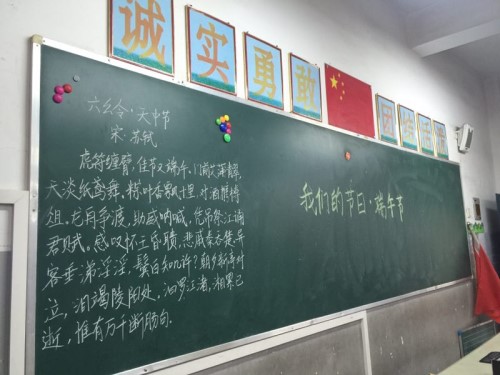 诚实勇敢
团结
六幺令·天中节
宋 苏轼
虎符缠臂,佳节又端午.门前艾蒲青翠,
天淡纸鸢舞.粽叶香飘十里,对酒携樽
俎.龙舟争渡,助威呐喊,凭吊祭江诵
君赋.感叹怀王昏聩,悲戚秦吞楚.异
客垂涕淫淫,鬓白知几许?朝夕新亭对
泣,泪竭陵阳处,汨罗江渚,湘累已
逝,惟有万千断肠句.
我们的节日·端午节